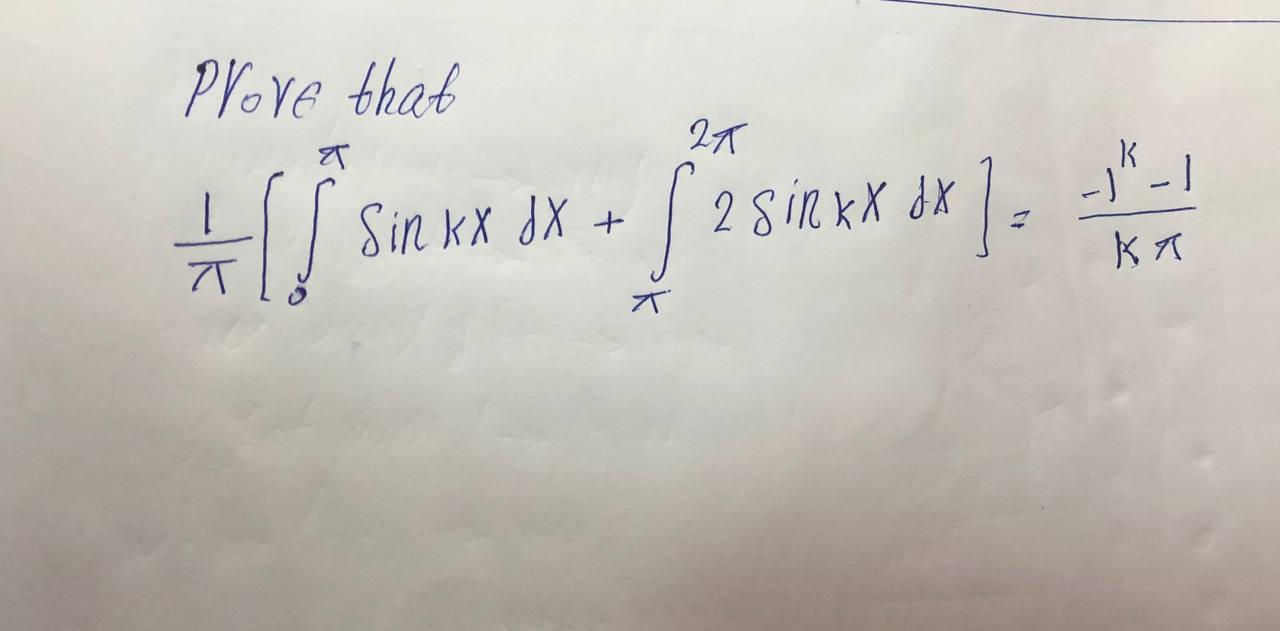 Prove that
1/π [∫₀^π sin kx dx + ∫_π^2π 2 sin kx dx] = -1^k - 1 / kπ